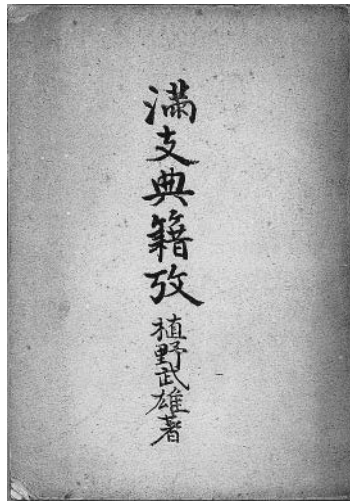 満支典籍攷
植野武雄著